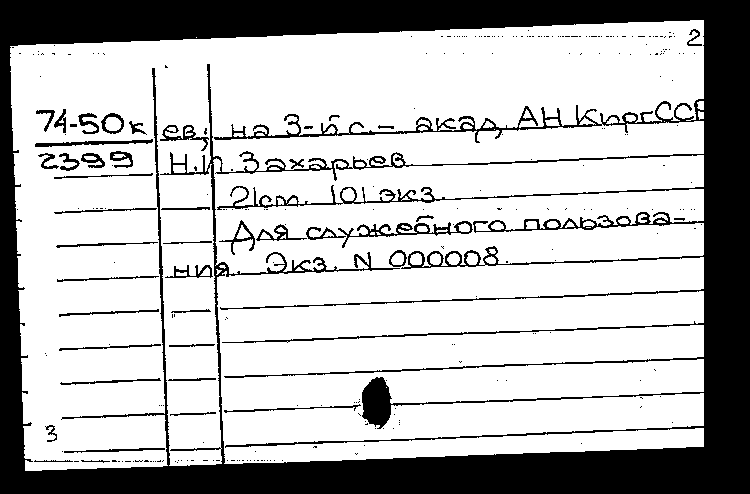 2
74-50к ев; на 3-й с. – акад. АН КиргССР
2399 Н.И. Захарьев.
21см. 101 экз.
Для служебного пользова-
ния. Экз. N 000008.
3